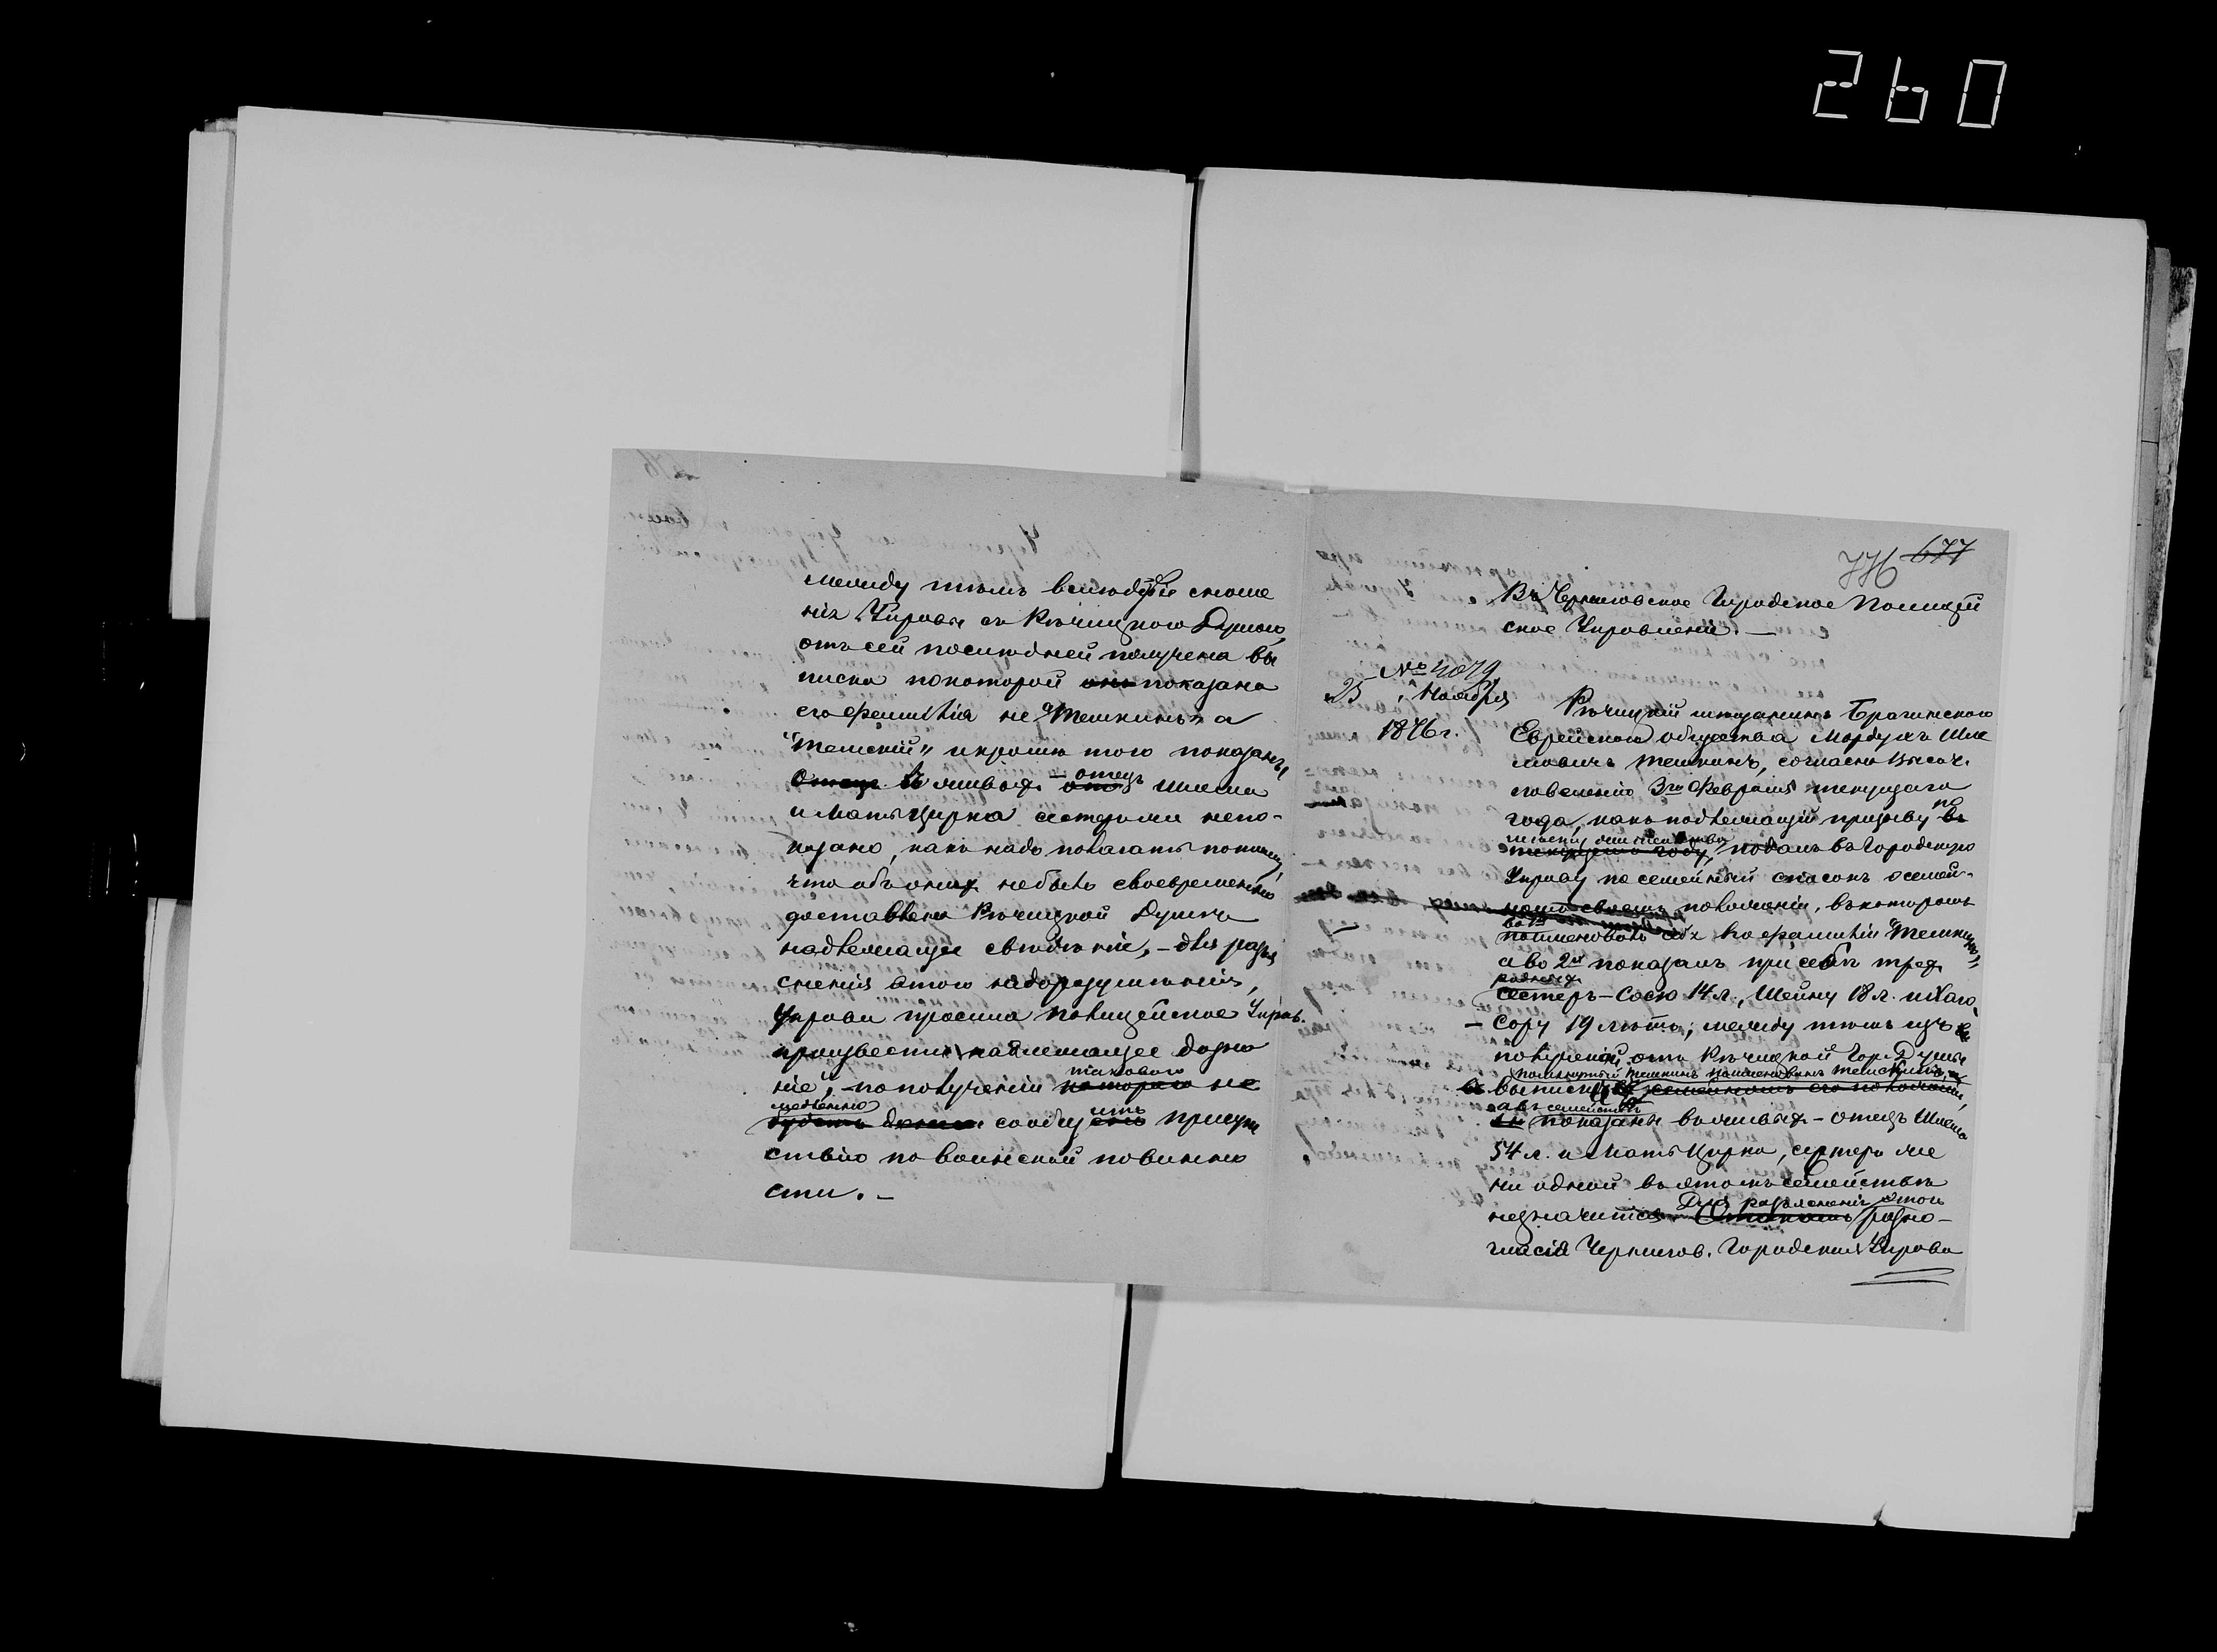 260
между тѣмъ вслѣдствіе сноше
нія Управы съ Рѣчицкою Думою,
отъ сей послѣдней получена вы
писка по которой показана
его фамилія не „Тешкинъ" а
"Темскій" и кромѣ того показанъ
въ живыхъ – отецъ Шлема
и Мать Цирка сестры же непо-
казано, какъ надо полагать потому,
что объ оныхъ не было своевременно
доставлено Рѣчицкой Думѣ
надлежащее свѣдѣніе, – для разъя
сненія этого недоразумѣнія,
Управа просила Полицейское Управ.
произвести надлежащее дозна
ніе, – по полученіи таковаго не
медленно сообщить присут
ствію по воинской повинно
сти. –
677
Въ Черниговское Городское Полицей
ское Управленіе. –
№ 4079
25 Ноября
1876 г.
Рѣчицкій мѣщанинъ Брагинского
Еврейскаго общества Мордухъ Шле
мовичъ Тешкинъ, согласно Высоч.
повелѣнію 3го Февраля текущаго
года, какъ подлежащій призыву
подалъ въ Городскую
Управу посемейный списокъ о семей-
положеніи, въ которомъ
во 1хъ
поименовалъ себя по фамиліи "Тешкинъ"
а во 2хъ показалъ при себѣ трехъ
родныхъ
сестеръ – Сосю 14 л., Шейну 18 л. и Хаю
– Сору 19 лѣтъ; между тѣмъ изъ
полученной отъ Рѣчицкой Гор. Думы
помянутый Тешкинъ поименованъ Темскимъ, а
выписки
въ семействѣ
показаны въ живыхъ – отецъ Шлема
54 л. и Мать Цирка, сестры же
ни одной въ этомъ семействѣ
Для разъясненія этого
незначится. разно-
гласія Чернигов. Городская Управа